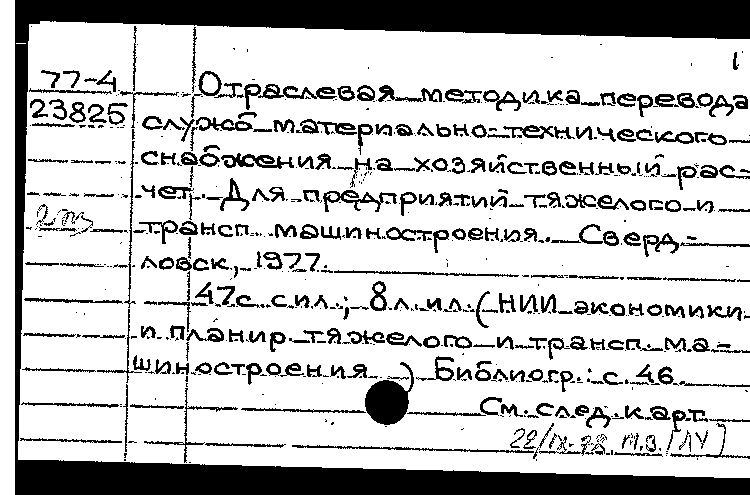 1
77-4
23825
Отраслевая методика перевода
служб материально-технического
снабжения на хозяйственный рас-
чет. Для предприятий тяжелого и
трансп. машиностроения. Сверд-
ловск, 1977.
47с с ил.; 8л. ил. (НИИ экономики
и планир. тяжелого и трансп. ма-
шиностроения) Библиогр.: с. 46.
См. след. карт.
22/IX-78. М.З. [ЛУ]